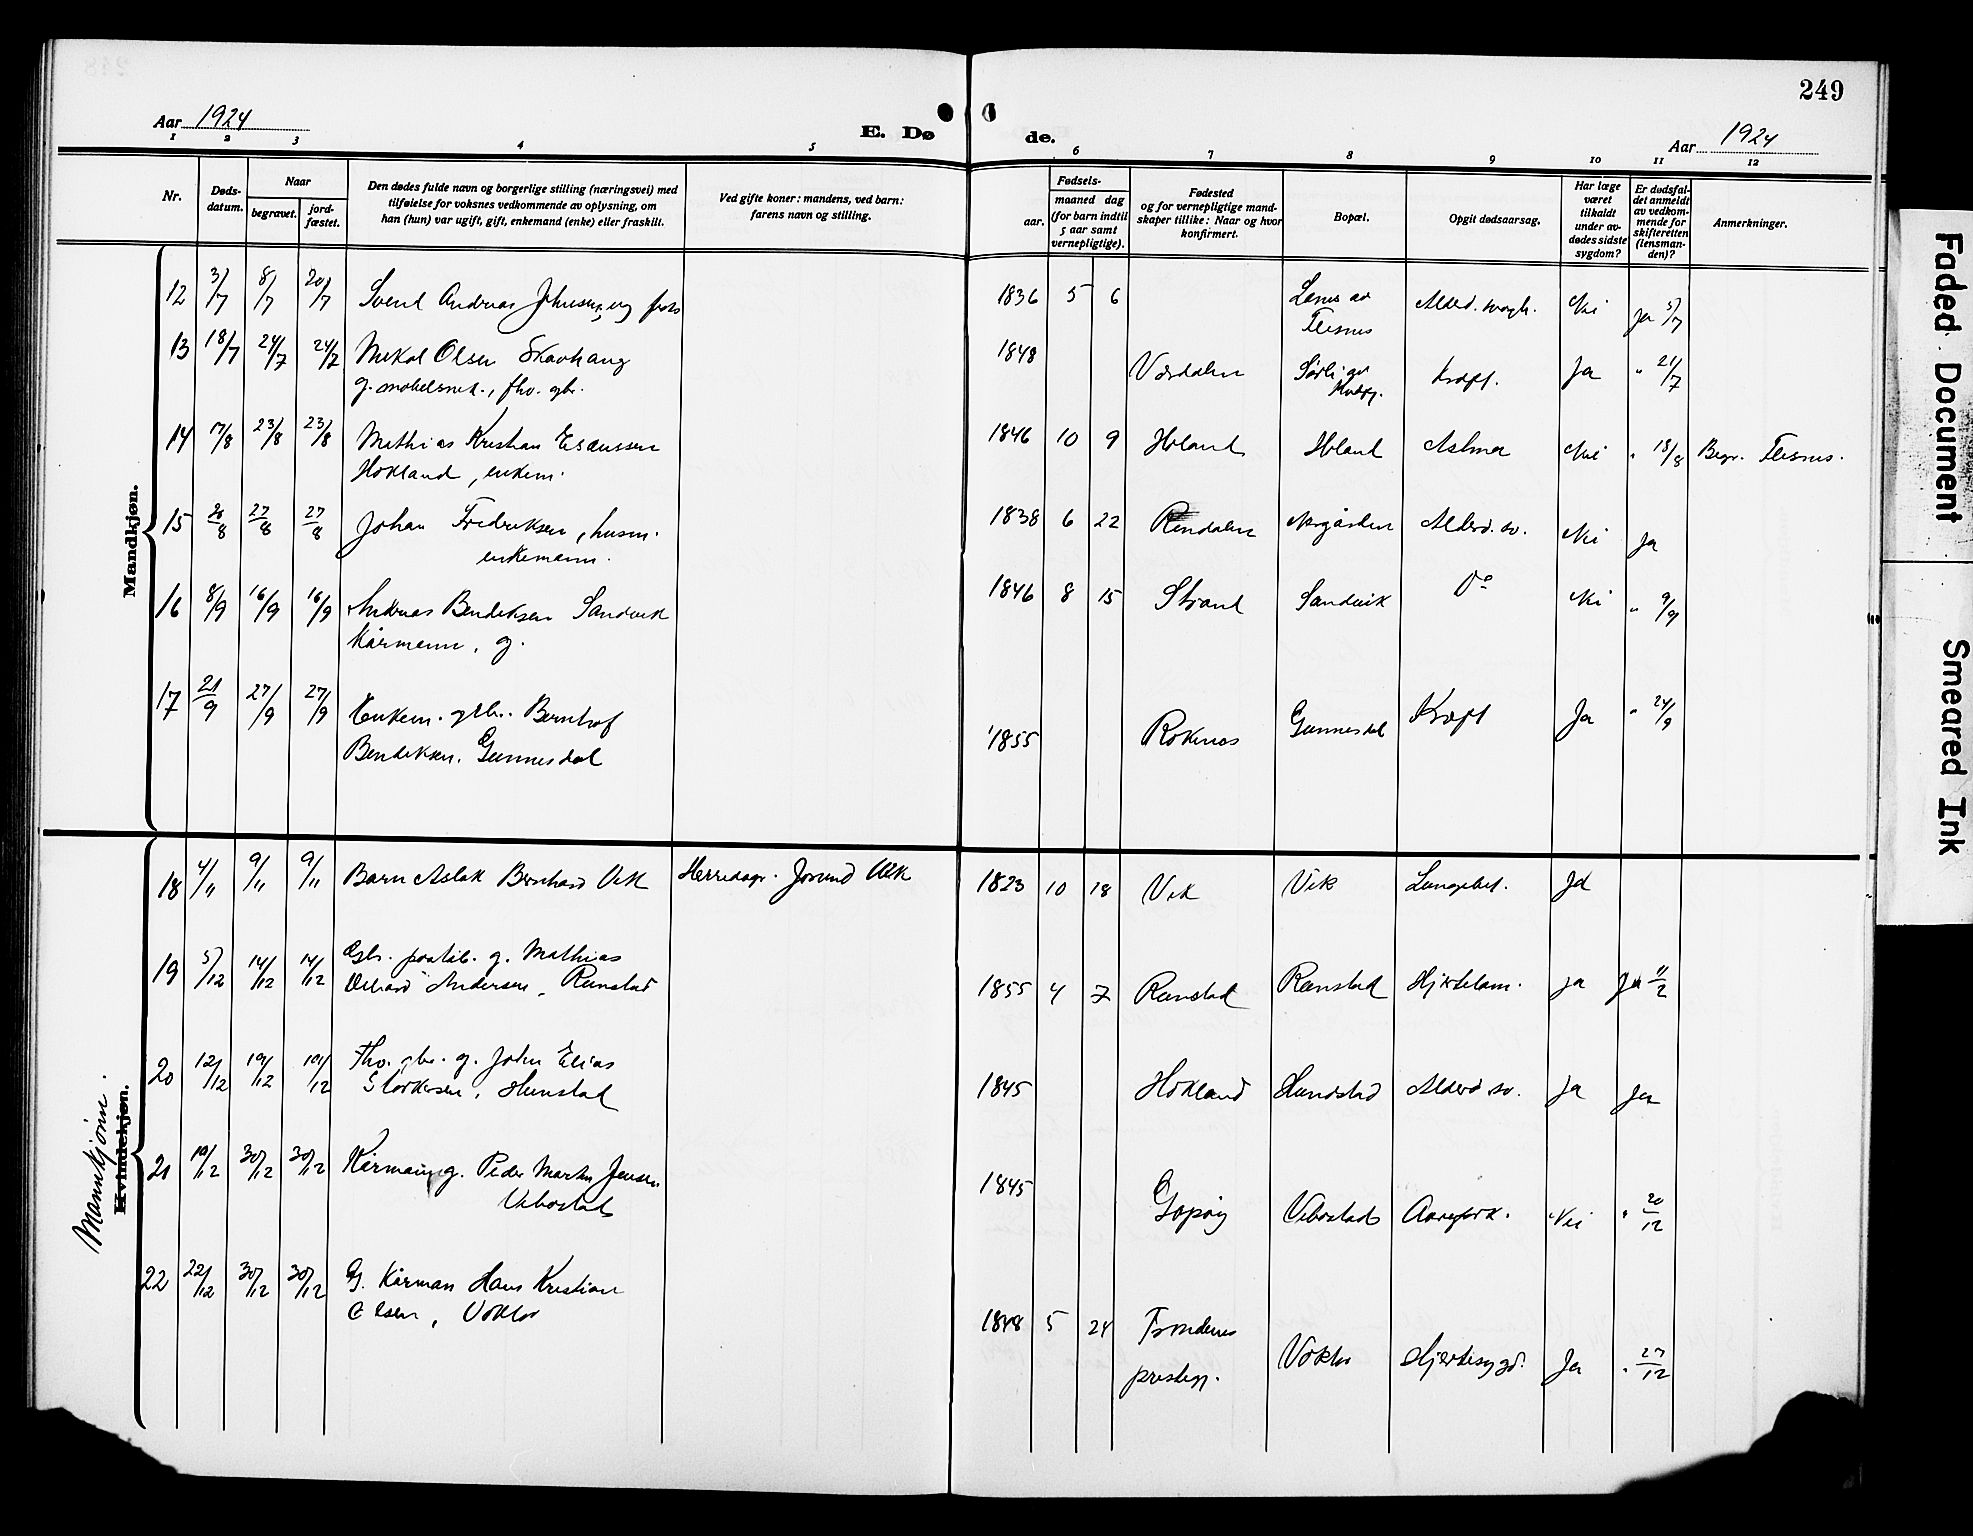 249
Aar 1924
E. Dø de.
Aar 1924
1 2 3 4 5 6 7 8 9 10 11 12
Nr.
Døds-
datum.
Naar
begravet.
jord-
fæstet.
Den dødes fulde navn og borgerlige stilling (næringsvei) med
tilføielse for voksnes vedkommende av oplysning, om
han (hun) var ugift, gift, enkemand (enke) eller fraskilt.
Ved gifte koner: mandens, ved barn:
farens navn og stilling.
Fødsels-
aar.
maaned dag
(for barn indtil
5 aar samt
vernepligtige).
Fødested
og for vernepligtige mand-
skaper tillike: Naar og hvor
konfirmert.
Bopæl.
Opgit dødsaarsag.
Har læge
været
tilkaldt
under av-
dødes sidste
sygdom?
Er dødsfal-
det anmeldt
av vedkom-
mende for
skifteretten
(lensman-
den)?
Anmerkninger.
Mandkjøn.
12 3/7 8/7 20/7 Svend Andreas Johnsen 1836 5 6 Flesnes Nei Ja 5/7
13 18/7 24/7 24/7 Mikal Olsen Skavhaug 1848 Værdalen Kræft. Ja " 21/7
14 17/8 23/8 23/8 Mathias Kristian Esaussen 1846 10 9 Hokland Astma Nei " 18/8 Begr. Flesnes.
Hokland, enkem.
15 20/8 27/8 27/8 Johan Fredriksen, husm. 1838 6 22 Rendalen Alderd. sv. Nei Ja
enkemann.
16 8/9 16/9 16/9 Andreas Bendiksen Sandvik 1846 8 15 Strand Sandvik Do Nei " 9/9
Kårmann, g.
17 21/9 27/9 27/9 Enkem. gbr. Bernhof 1855 Rokenes Gunnesdal Kræft Ja " 24/9
Bendiksen. Gunnesdal
Kvindekjøn.
Mannkjønn.
18 4/11 9/11 9/11 Barn Aslak Bernhard Vik Herredagr. Jorund Vik 1823 10 18 Vik Vik Lungebet. Ja
19 5/12 14/12 14/12 Gbr. g. Mathias
Andersen, Renstad 1855 4 7 Renstad Renstad Hjertelam. ja Ja 11/2
20 12/12 19/12 19/12 Fhv. gbr. g. John Elias
Storkersen, Hunstad 1845 Hokland Hundstad Alderd. sv. Ja Ja
21 19/12 30/12 30/12 Kårmann g. Peder Martin Jensen 1845 Gapøy Vebostad Aarefork. Nei " 20/12
Vebostad
22 22/12 30/12 30/12 G. Kårman Hans Kristian
Olsen, Voktor 1848 5 24 Trondenes
prestegj. Voktor Hjertesygd. Ja " 27/12
Faded Document
Smeared Ink